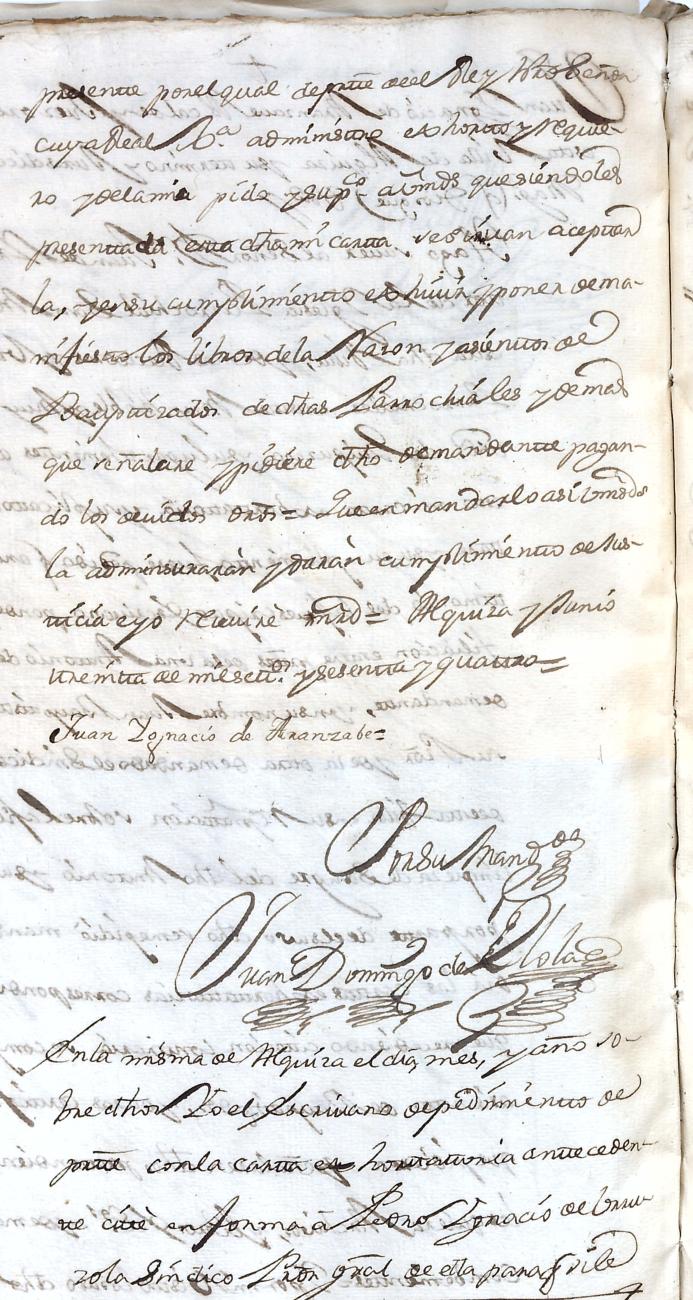 presente por el qual de prte de el Rey Ntro Señor
cuya Real Jª administro exhorto y requie-
ro y de la mia pido y supco a Vmds que siendoles
presentada esta dha mi carta se sirvan aceptar
la, y en su cumplimiento exhivir y poner de ma-
nifiesto los libros de la Razon y asientos de
Baupticados de dhas Parrochiales y demas
que señalare y pidiere dho demandante pagan-
do los devidos dros = Que en mandarlo asi Vmds
la administraràn y daràn cumplimiento de Jus-
ticia e yo recivire mrd = Alquiza y Junio
treinta de mil settos y sesenta y quattro =
Juan Ygnacio de Aranzabe =
Por su Mando
Juan Domingo de
En la misma de Alquiza el dia, mes, y año so-
bre dhos Yo el Escrivano de pedimiento de
prte con la carta exhortatoria anteceden-
te citè en forma à Pedro Ygnacio de Urru-
zola Sindico Pror gral de ella para